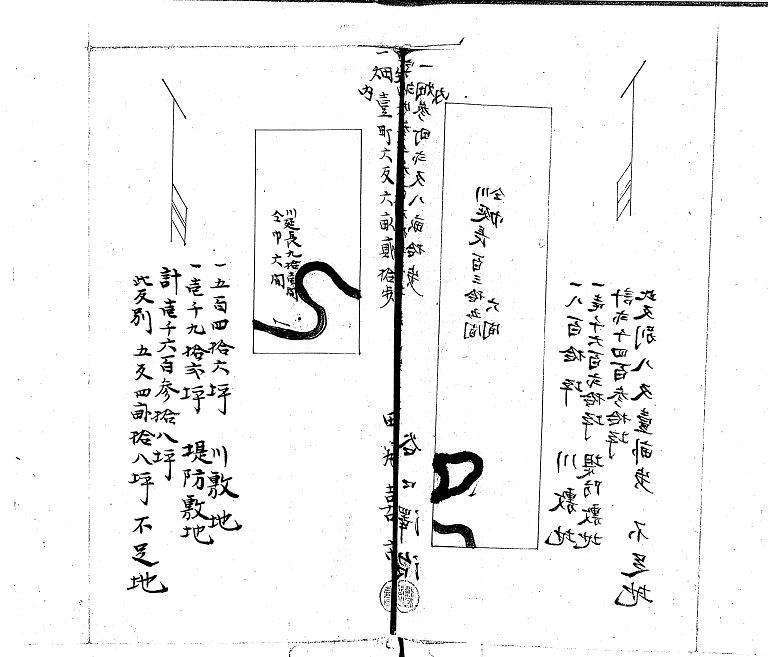 一畑参町弐反八畝拾歩
内
川延長百三拾五間
仝巾六間
一八百拾坪 川敷地
一壱千六百弐拾坪 堤防敷地
計弐千四百参拾坪
此反別八反壹畝歩 不足地
一畑壹町六反六畝貳拾歩
内
川延長九拾壹間
仝巾六間
一五百四拾六坪 川敷地
一壱千九拾弐坪 堤防敷地
計壱千六百参拾八坪
此反別 五反四畝拾八坪 不足地